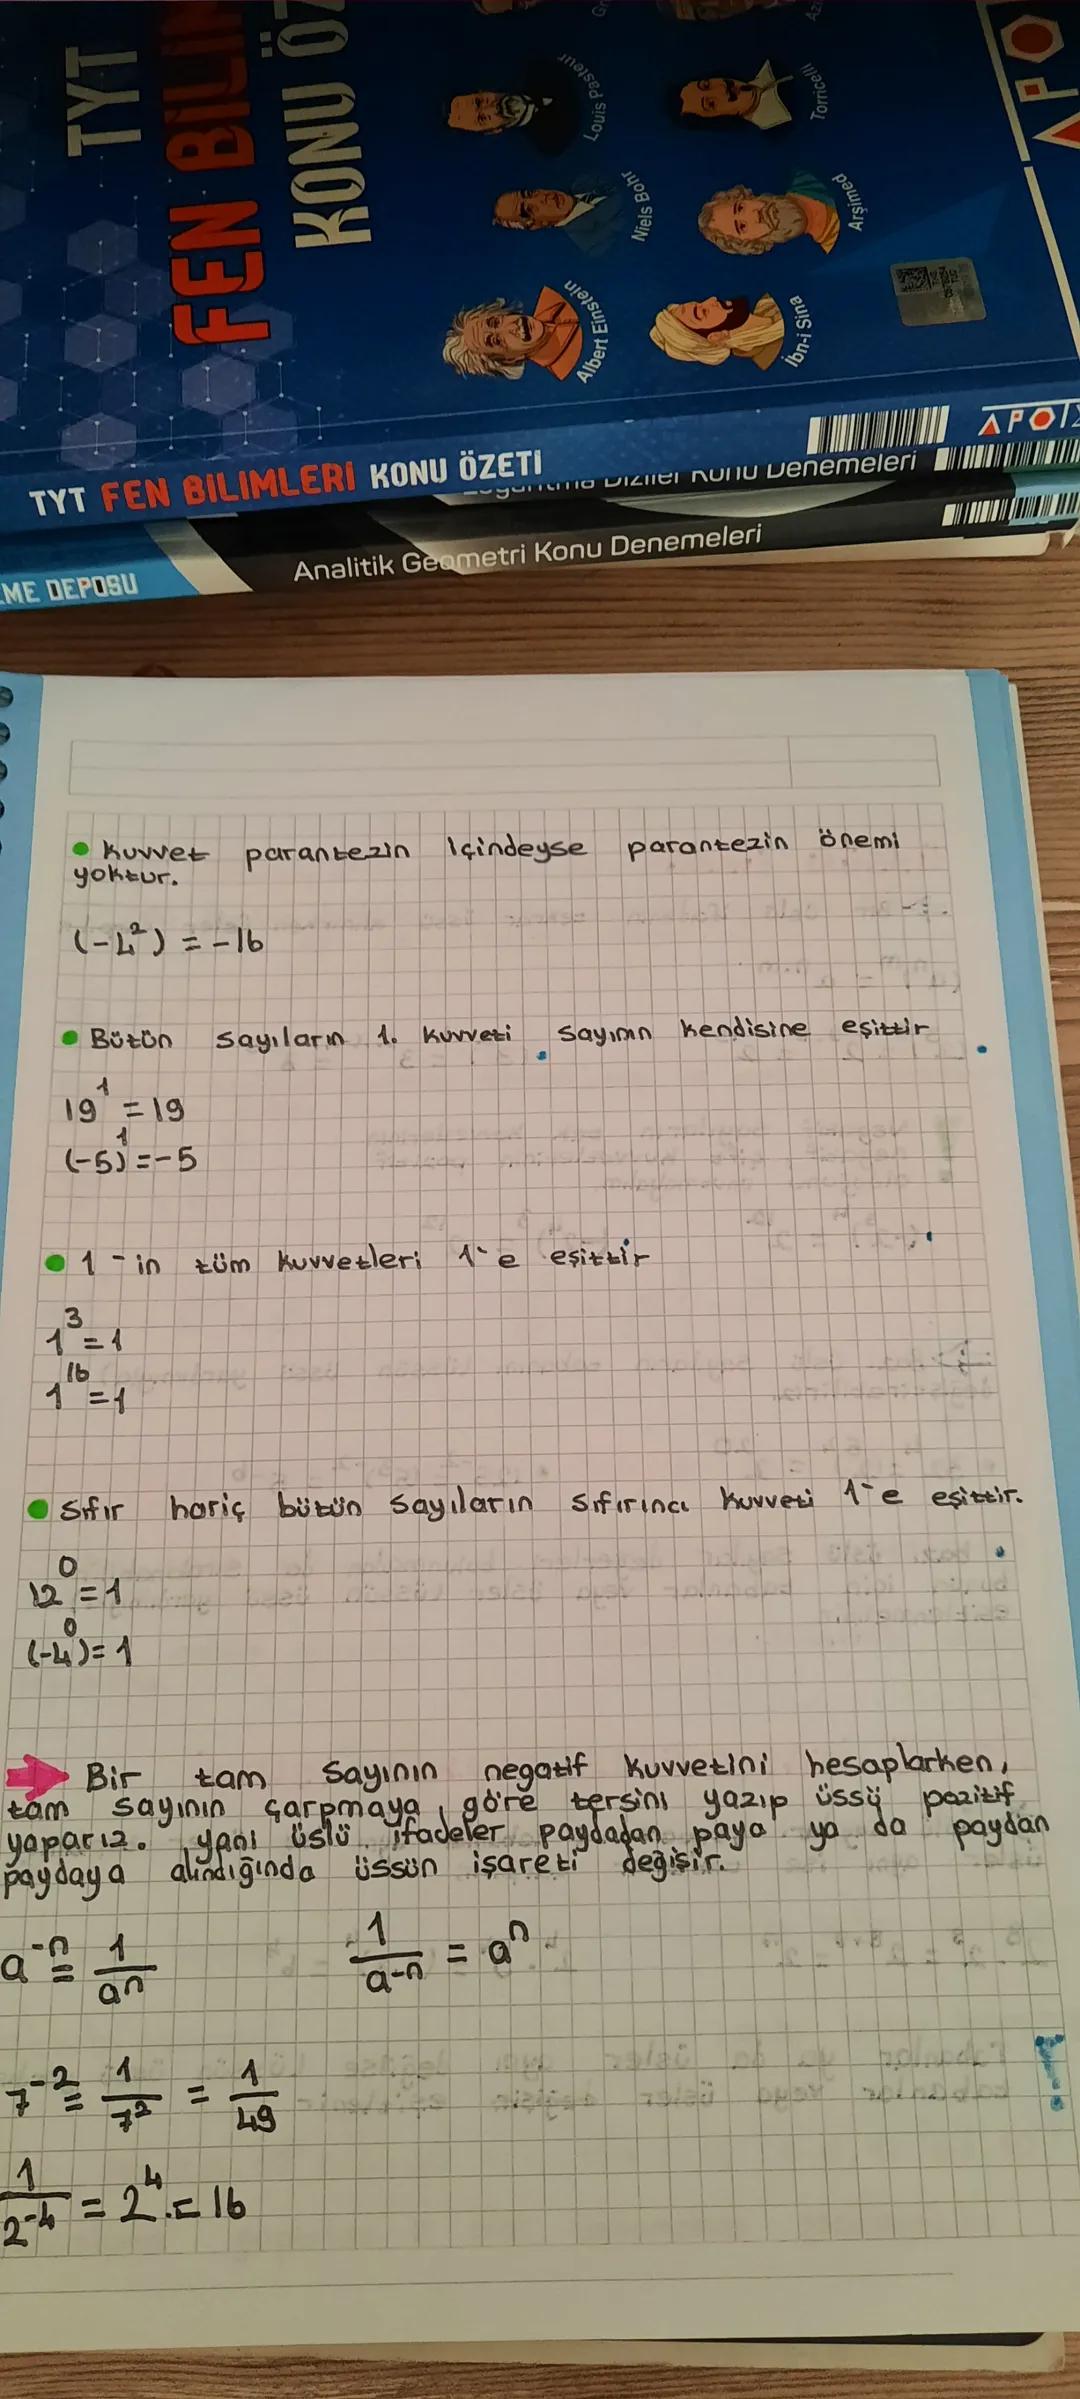 TYT
FEN BİLİM
KONU ÖZ
Louis Pasteur
Torricelli
Niels Bohr
Arşimed
Albert Einstein
İbn-i Sina
TYT FEN BİLİMLERİ KONU ÖZETİ
Diziler Konu Denemeleri
Analitik Geometri Konu Denemeleri
EME DEPOSU
• Kuvvet parantezin içindeyse parantezin önemi
yoktur.
(-4²) = -16
• Bütün sayıların 1. kuvveti sayının kendisine eşittir
19¹ = 19
(-5)¹ = -5
• 1-in tüm kuvvetleri 1'e eşittir
1³ = 1
1¹⁶ = 1
• Sıfır hariç bütün sayıların sıfırıncı kuvveti 1'e eşittir.
12⁰ = 1
(-4⁰) = 1
➡ Bir tam sayının negatif kuvvetini hesaplarken,
tam sayının çarpmaya göre tersini yazıp üssü pozitif
yaparız. yani üslü ifadeler paydadan paya ya da paydan
paydaya alındığında üssün işareti değişir.
a⁻ⁿ = 1/aⁿ 1/a⁻ⁿ = aⁿ
7⁻² = 1/7² = 1/49
1/2⁻⁴ = 2⁴ = 16